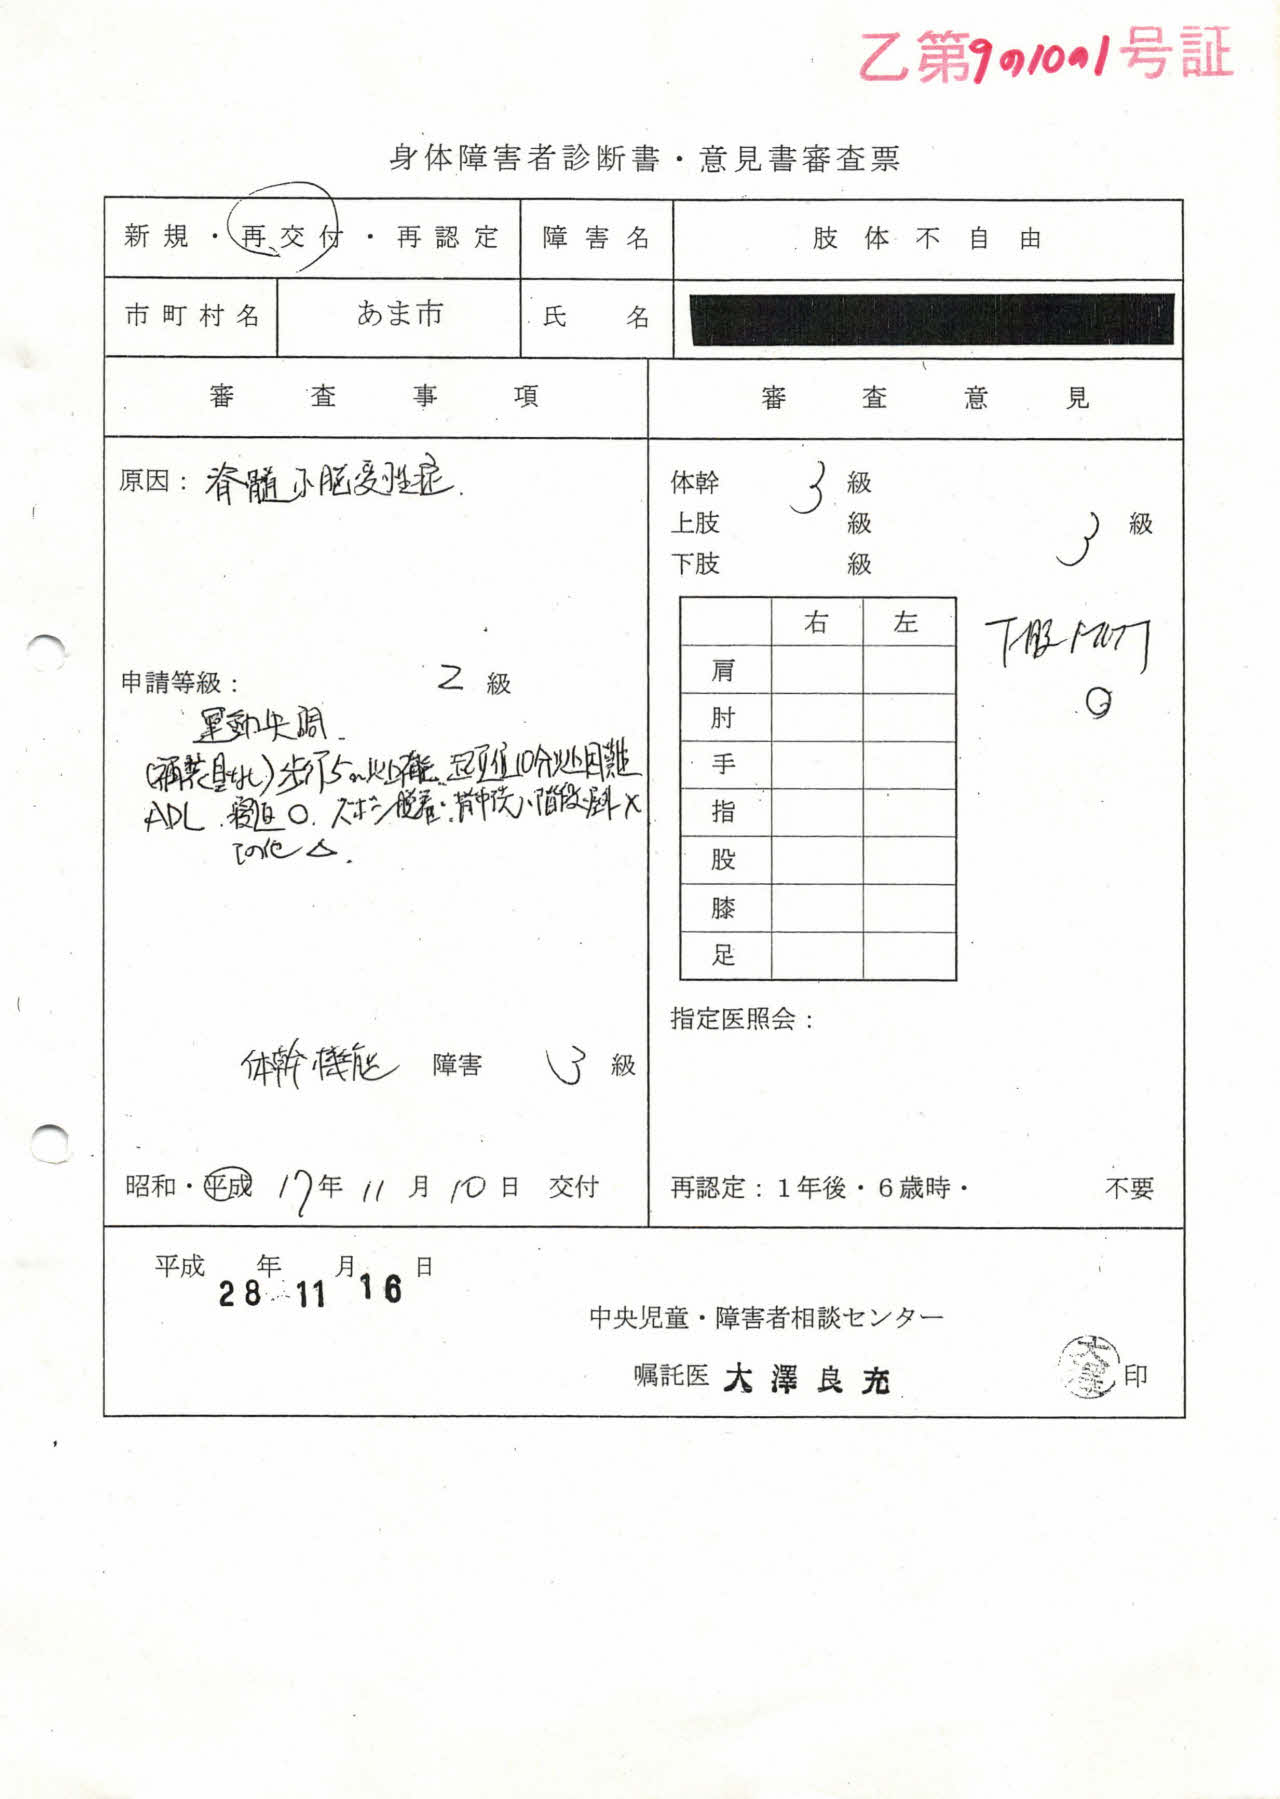 乙第9の10の1号証
身体障害者診断書・意見書審査票
新規・再交付・再認定 障害名 肢体不自由
市町村名 あま市 氏名
審査事項 審査意見
原因：脊髄小脳変性症.
体幹 3 級
上肢 級 3 級
下肢 級
右 左
肩
肘
手
指
股
膝
足
申請等級： 2 級
運動失調.
(補装具なし) 歩行5m以上 10分以上困難
ADL.寝返○.ズボン脱着・背中洗い・階段 ×
その他△.
指定医照会：
体幹機能 障害 3 級
昭和・平成 17年 11月 10日 交付
再認定：1年後・6歳時・ 不要
平成 28年 11月 16日
中央児童・障害者相談センター
嘱託医 大澤良充 印